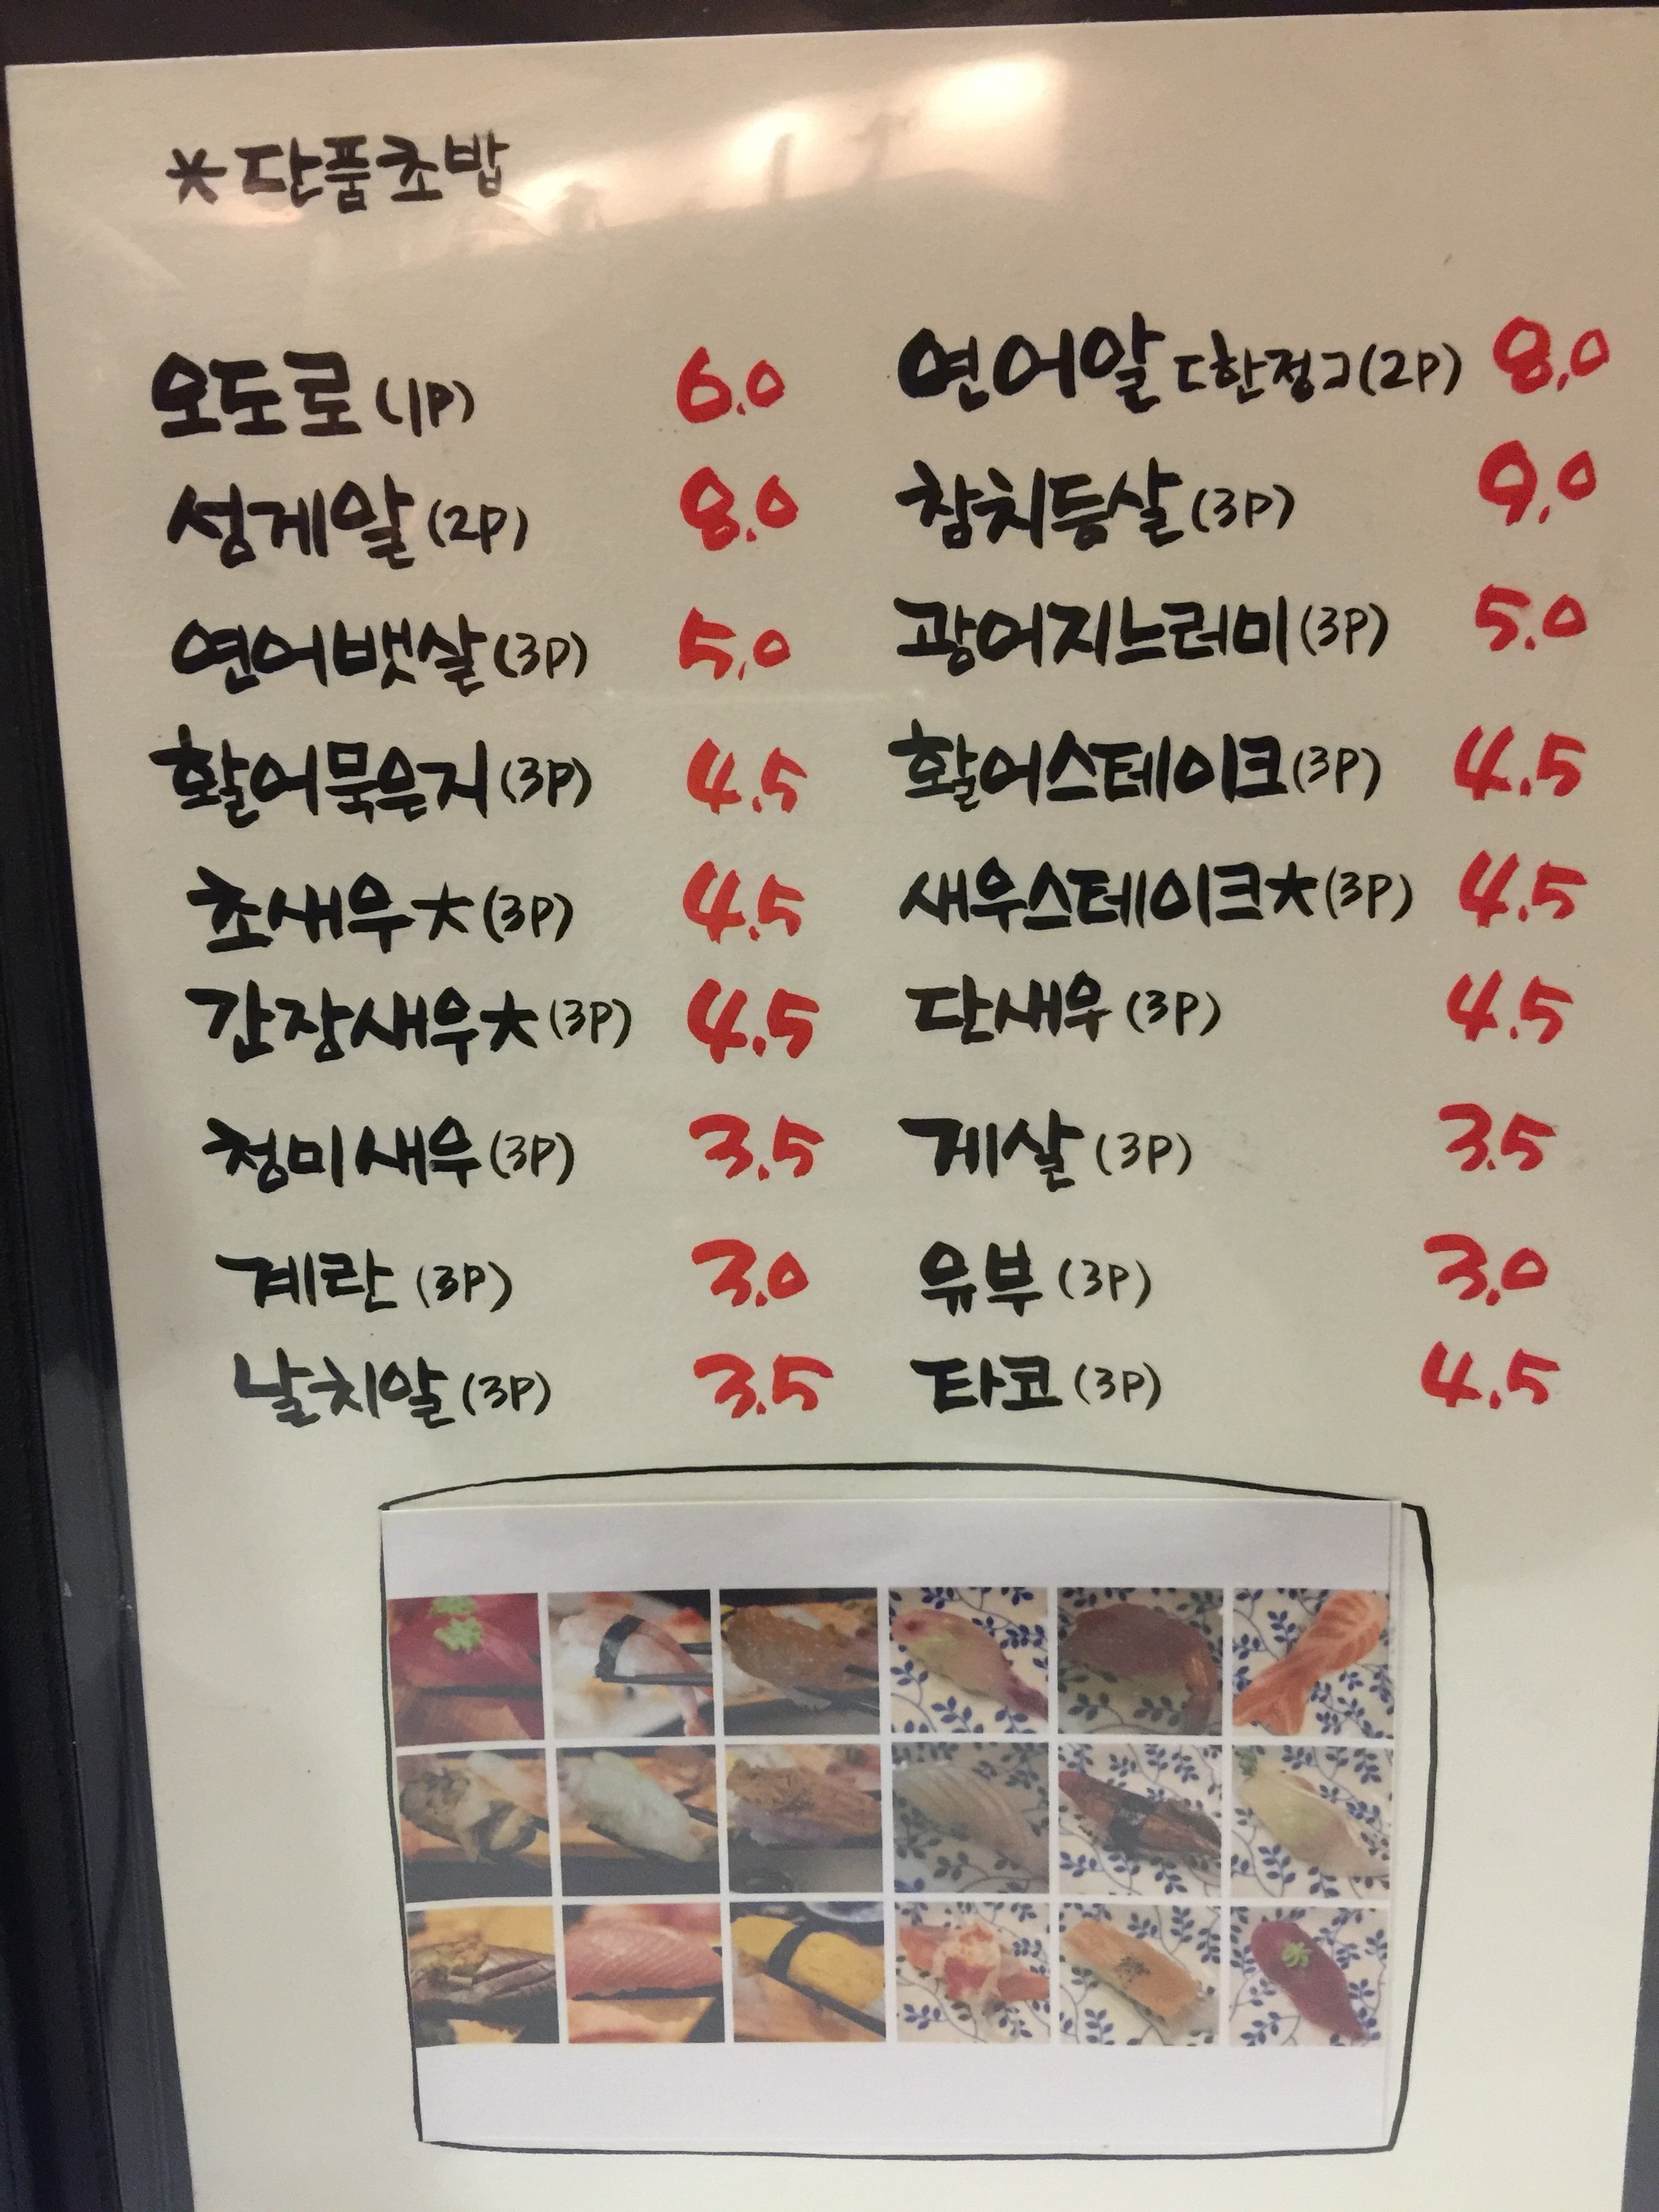 *단품초밥
오도로(1P) 6.0
성게알(2P) 8.0
연어뱃살(3P) 5.0
활어묵은지(3P) 4.5
초새우★(3P) 4.5
간장새우★(3P) 4.5
청미새우(3P) 3.5
계란(3P) 3.0
날치알(3P) 3.5
연어알[한정](2P) 8.0
참치등살(3P) 9.0
광어지느러미(3P) 5.0
활어스테이크(3P) 4.5
새우스테이크★(3P) 4.5
단새우(3P) 4.5
게살(3P) 3.5
유부(3P) 3.0
타코(3P) 4.5